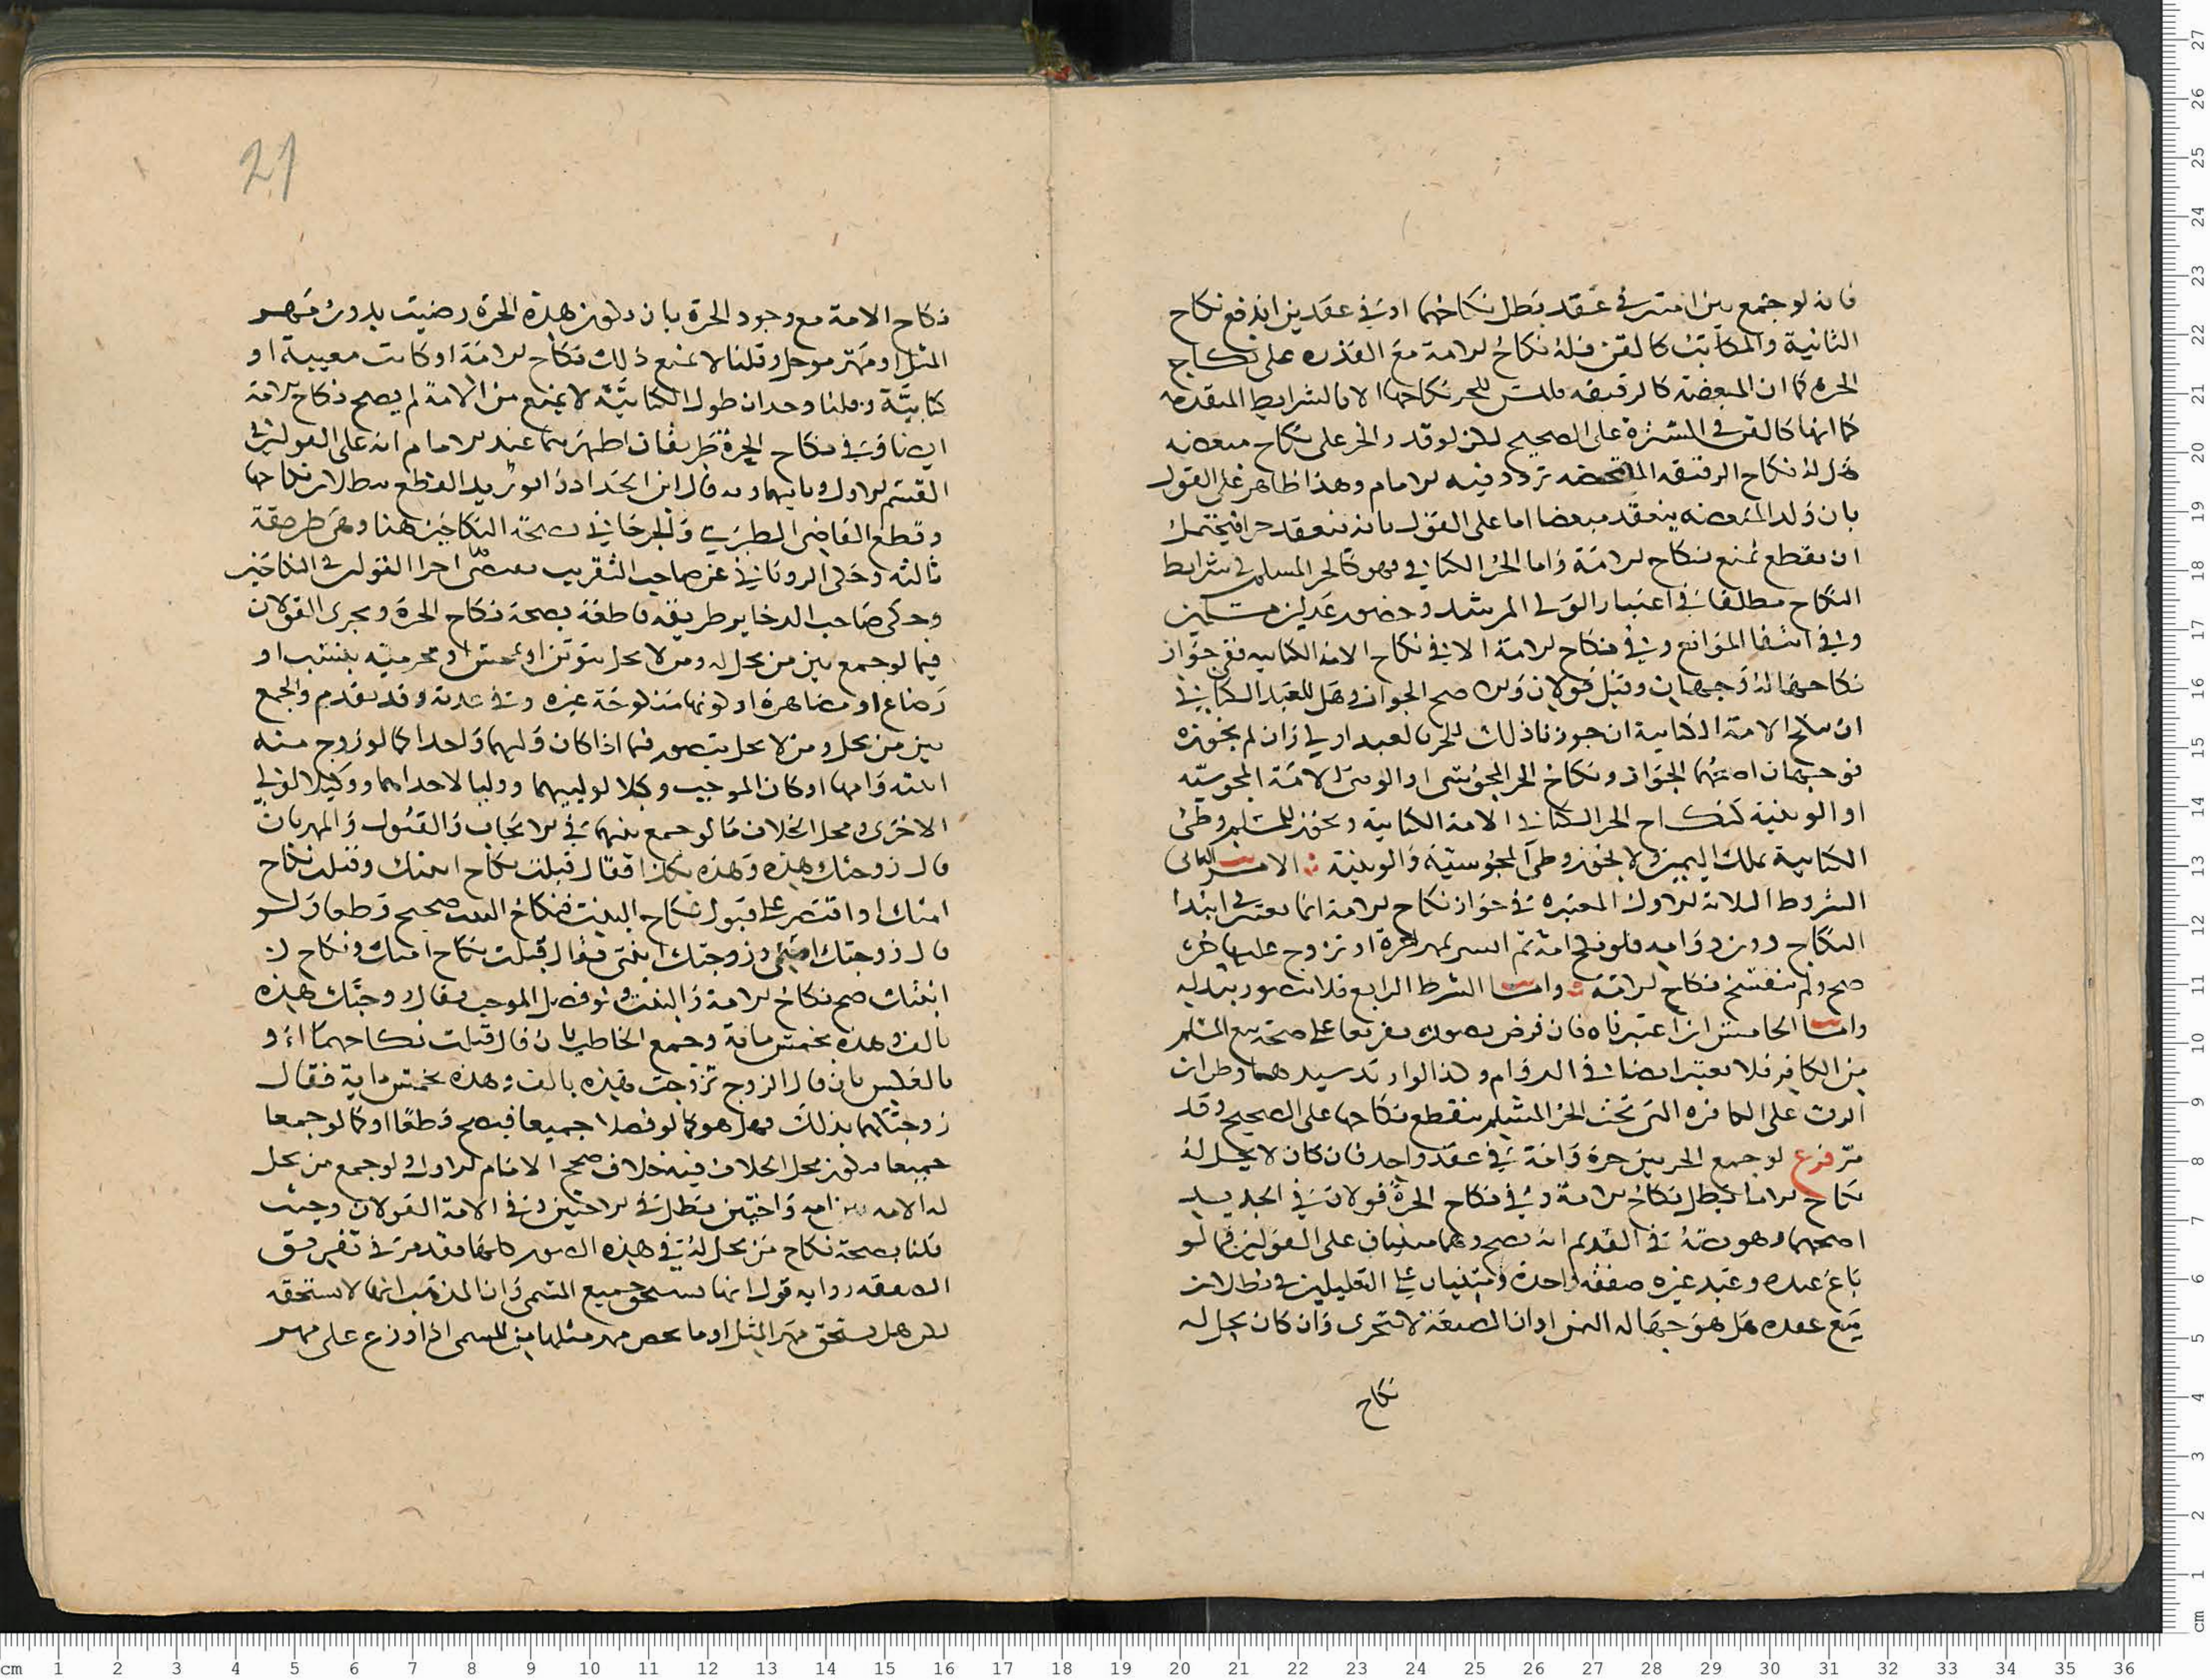 فانه لو جمع بين امتين في عقد بطل نكاحهما او في عقدين اندفع نكاح
الثانية والمكاتبة كالقن فله نكاح الامة مع القدرة على نكاح
الحرة كما ان المبعضة كالرقيقة فليس للحر نكاحها الا بالشرايط المتقدمة
كما انها كالقن في على الصحيح لكن لو قدر الحر على نكاح مبعضة
فهل له نكاح الرقيقة المحضة تردد فيه الامام وهذا ظاهر على القول
بان ولد المبعضة ينعقد مبعضا اما على القول بانه ينعقد حرا فيحتمل
ان يقطع بمنع نكاح الامة واما الحر الكتابي فهو كالحر المسلم في شرايط
النكاح مطلقا في اعتبار الولي المرشد وحضور عدلين مسلمين
وفي انتفا الموانع وفي نكاح الامة الا في نكاح الامة الكتابية ففي جواز
نكاحها له وجهان وقيل قولان صح الجواز وهل للعبد الكتابي
ان ينكح الامة الكتابية ان جوزنا ذلك للحر فالعبد اولى وان لم نجوزه
فوجهان الجواز ونكاح الحر المجوسي او الوثني الامة المجوسية
او الوثنية كنكاح الحر الكتابي الامة الكتابية ويجوز للمسلم وطئ
الكتابية بملك اليمين ولا يجوز وطئ المجوسية والوثنية الامر الثاني
الشروط الثلاثة الاول المعتبرة في جواز نكاح الامة انما تعتبر في ابتدا
النكاح دون دوامه فلو نكح امة ثم ايسر بمهر حرة او تزوج عليها حرة
صح ولم ينفسخ نكاح الامة واما الشرط الرابع فلا يتصور تبدله
واما الخامس ان اعتبرناه فان فرض بصورة تفريعا على صحة بيع المسلم
من الكافر فلا يعتبر ايضا في الدوام وطران
الرق على الكافرة التي تحت الحر المسلم ينقطع نكاحها على الصحيح وقد
مر فرع لو جمع الحر بين حرة وامة في عقد واحد فان كان لا يحل له
نكاح الاما بطل نكاح الامة وفي نكاح الحرة قولان في الجديد
اصحهما وهو في القديم انه يصح وهما مبنيان على القولين فيما لو
باع عبده وعبد غيره صفقة واحدة ومبنيان على التعليلين في بطلان
بيع عبده هل هو جهالة الثمن او ان الصفقة لا تتجزى وان كان يحل له
نكاح
21
نكاح الامة مع وجود الحرة بان تكون هذه الحرة رضيت بدون مهر
المثل او مهر موجل وقلنا لا يمنع ذلك نكاح الامة او كانت معيبة او
كتابية وقلنا وجدان طول الكتابية لا يمنع من الامة لم يصح نكاح الامة
ايضا وفي نكاح الحرة طريقان اظهرهما عند الامام انه على القولين في
القسم الاول وثانيهما وبه قال ابن الحداد وابو زيد القطع ببطلان نكاحها
وقطع القاضي الطبري والجرجاني بصحة النكاحين هنا وهي طريقة
ثالثة وحكى الروياني عن صاحب التقريب اجرا القولين في النكاحين
وحكى صاحب الدخاير طريقة قاطعة بصحة نكاح الحرة ويجرى القولان
فيما لو جمع بين من يحل له ومن لا يحل بتوثن او تمجس او محرمية بنسب او
رضاع او مصاهرة او لكونها منكوحة غيره وفي عدته وقد تقدم والجمع
بين من يحل ومن لا يحل يتصور فيما اذا كان وليهما واحدا كما لو زوج منه
ابنته وامتها او كان الموجب وكيلا لولييهما ووليا لاحداهما ووكيلا لولي
الاخرى ومحل الخلاف ما لو جمع بينهما في الايجاب والقبول والمهر بان
قال زوجتك هذه وهذه بكذا فقال قبلت نكاح ابنتك وقبلت نكاح
امتك او اقتصر على قبول نكاح البنت فنكاح البنت صحيح قطعا ولو
قال زوجتك امتي وزوجتك ابنتي فقال قبلت نكاح امتك ونكاح
ابنتك صح نكاح الامة والبنت ولو فصل الموجب فقال زوجتك هذه
بالف وهذه بخمس مائة وجمع الخاطب بان قال قبلت نكاحهما او
بالعكس بان قال الزوج تزوجت هذه بالف وهذه بخمس ماية فقال
زوجتكهما بذلك فهل هو كما لو فصلا جميعا فيصح قطعا او كما لو جمعا
جميعا فيكون محل الخلاف فيه خلاف صحح الامام الاول ولو جمع من يحل
له الامة بين امة واختين بطل في الاختين وفي الامة القولان وحيث
قلنا بصحة نكاح من يحل له في هذه الصور كلها فقد مر في تفريق
الصفقة رواية قول انها تستحق جميع المسمى وان المذهب انها لا تستحقه
بل هل تستحق مهر المثل او ما يخص مهر مثلها من المسمى اذا وزع على مهر